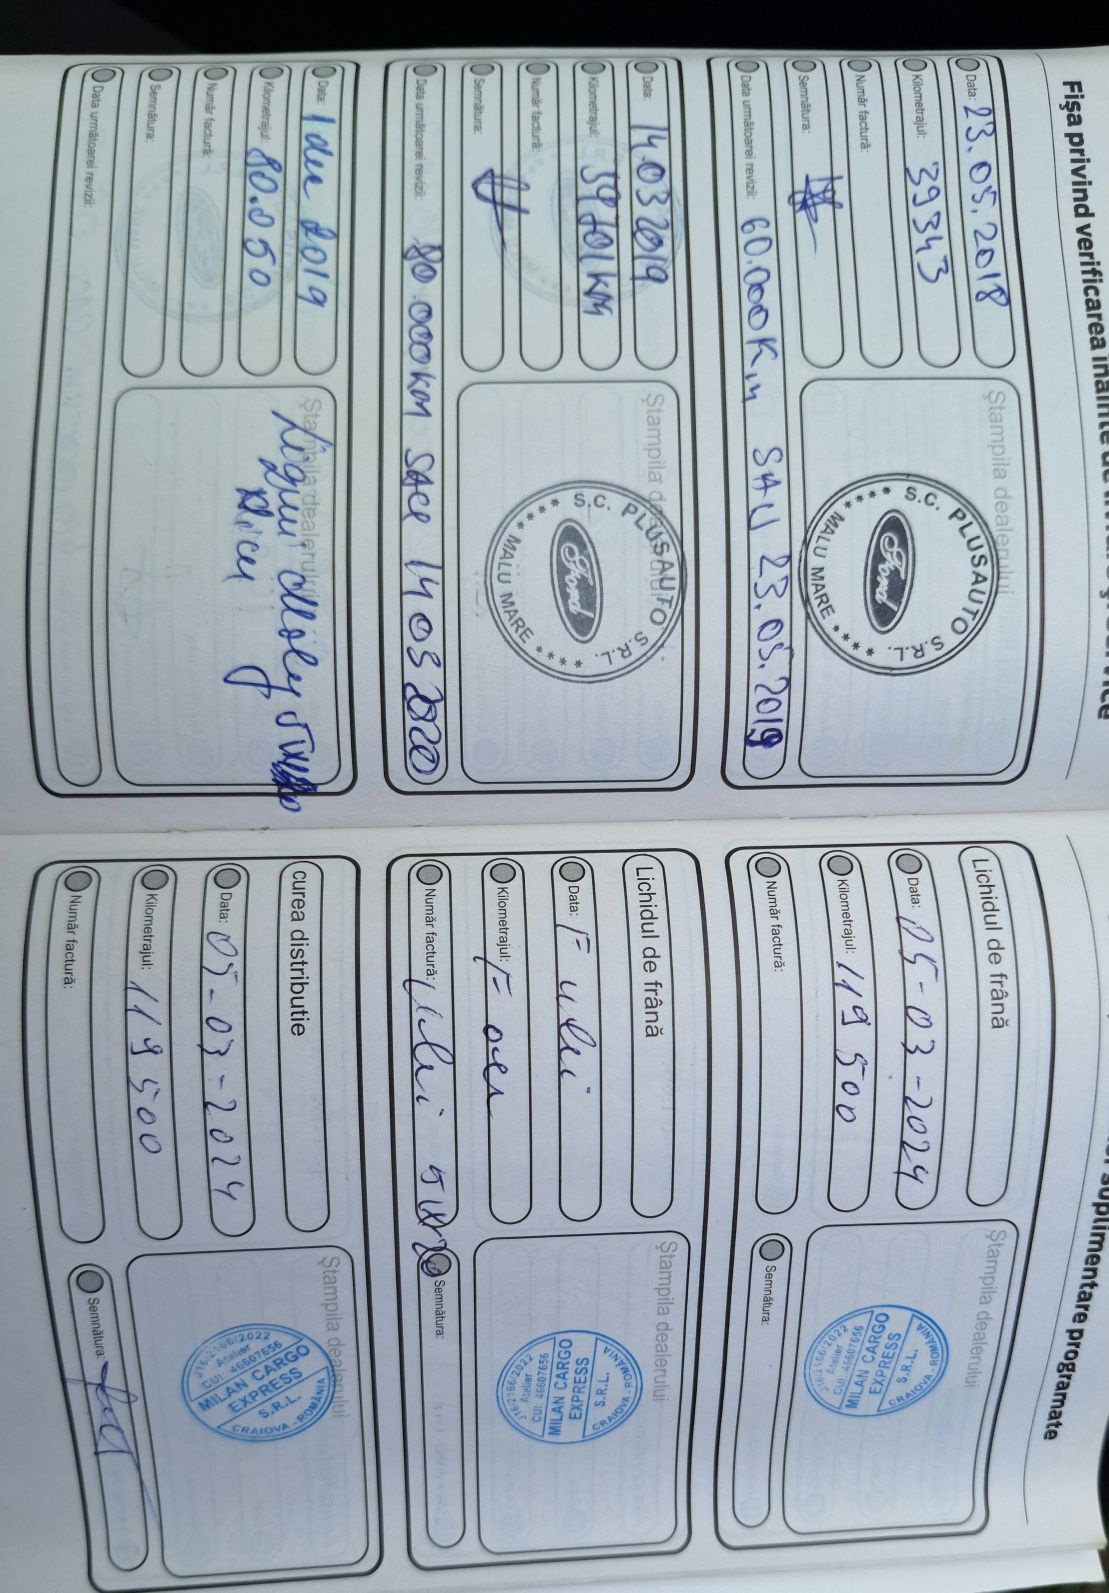 Fişa privind verificarea înainte de
Data: 23.05.2018
Kilometrajul: 39343
Număr factură:
Semnătura:
Data următoarei revizii: 60.000Km SAU 23.05.2019
Ştampila dealerului
S.C. PLUSAUTO S.R.L.
Ford
**** MALU MARE ****
Data: 14.03 2019
Kilometrajul: 59701 km
Număr factură:
Semnătura:
Data următoarei revizii: 80.000km 14 03 2020
Ştampila dealerului
S.C. PLUSAUTO S.R.L.
Ford
**** MALU MARE ****
Data: 2019
Kilometrajul: 80.050
Număr factură:
Semnătura:
Data următoarei revizii:
Ştampila dealerului
suplimentare programate
Lichidul de frână
Data: 05-03-2024
Kilometrajul: 119 500
Număr factură:
Semnătura:
Ştampila dealerului
J16/2166/2022
Atelier
CUI: 46607656
MILAN CARGO
EXPRESS
S.R.L.
CRAIOVA - ROMÂNIA
Lichidul de frână
Data: F ulei
Kilometrajul: F aer
Număr factură: Ulei 5W20
Semnătura:
Ştampila dealerului
J16/2166/2022
Atelier
CUI: 46607656
MILAN CARGO
EXPRESS
S.R.L.
CRAIOVA - ROMÂNIA
curea distributie
Data: 05-03-2024
Kilometrajul: 119 500
Număr factură:
Semnătura:
Ştampila dealerului
J16/2166/2022
Atelier
CUI: 46607656
MILAN CARGO
EXPRESS
S.R.L.
CRAIOVA - ROMÂNIA